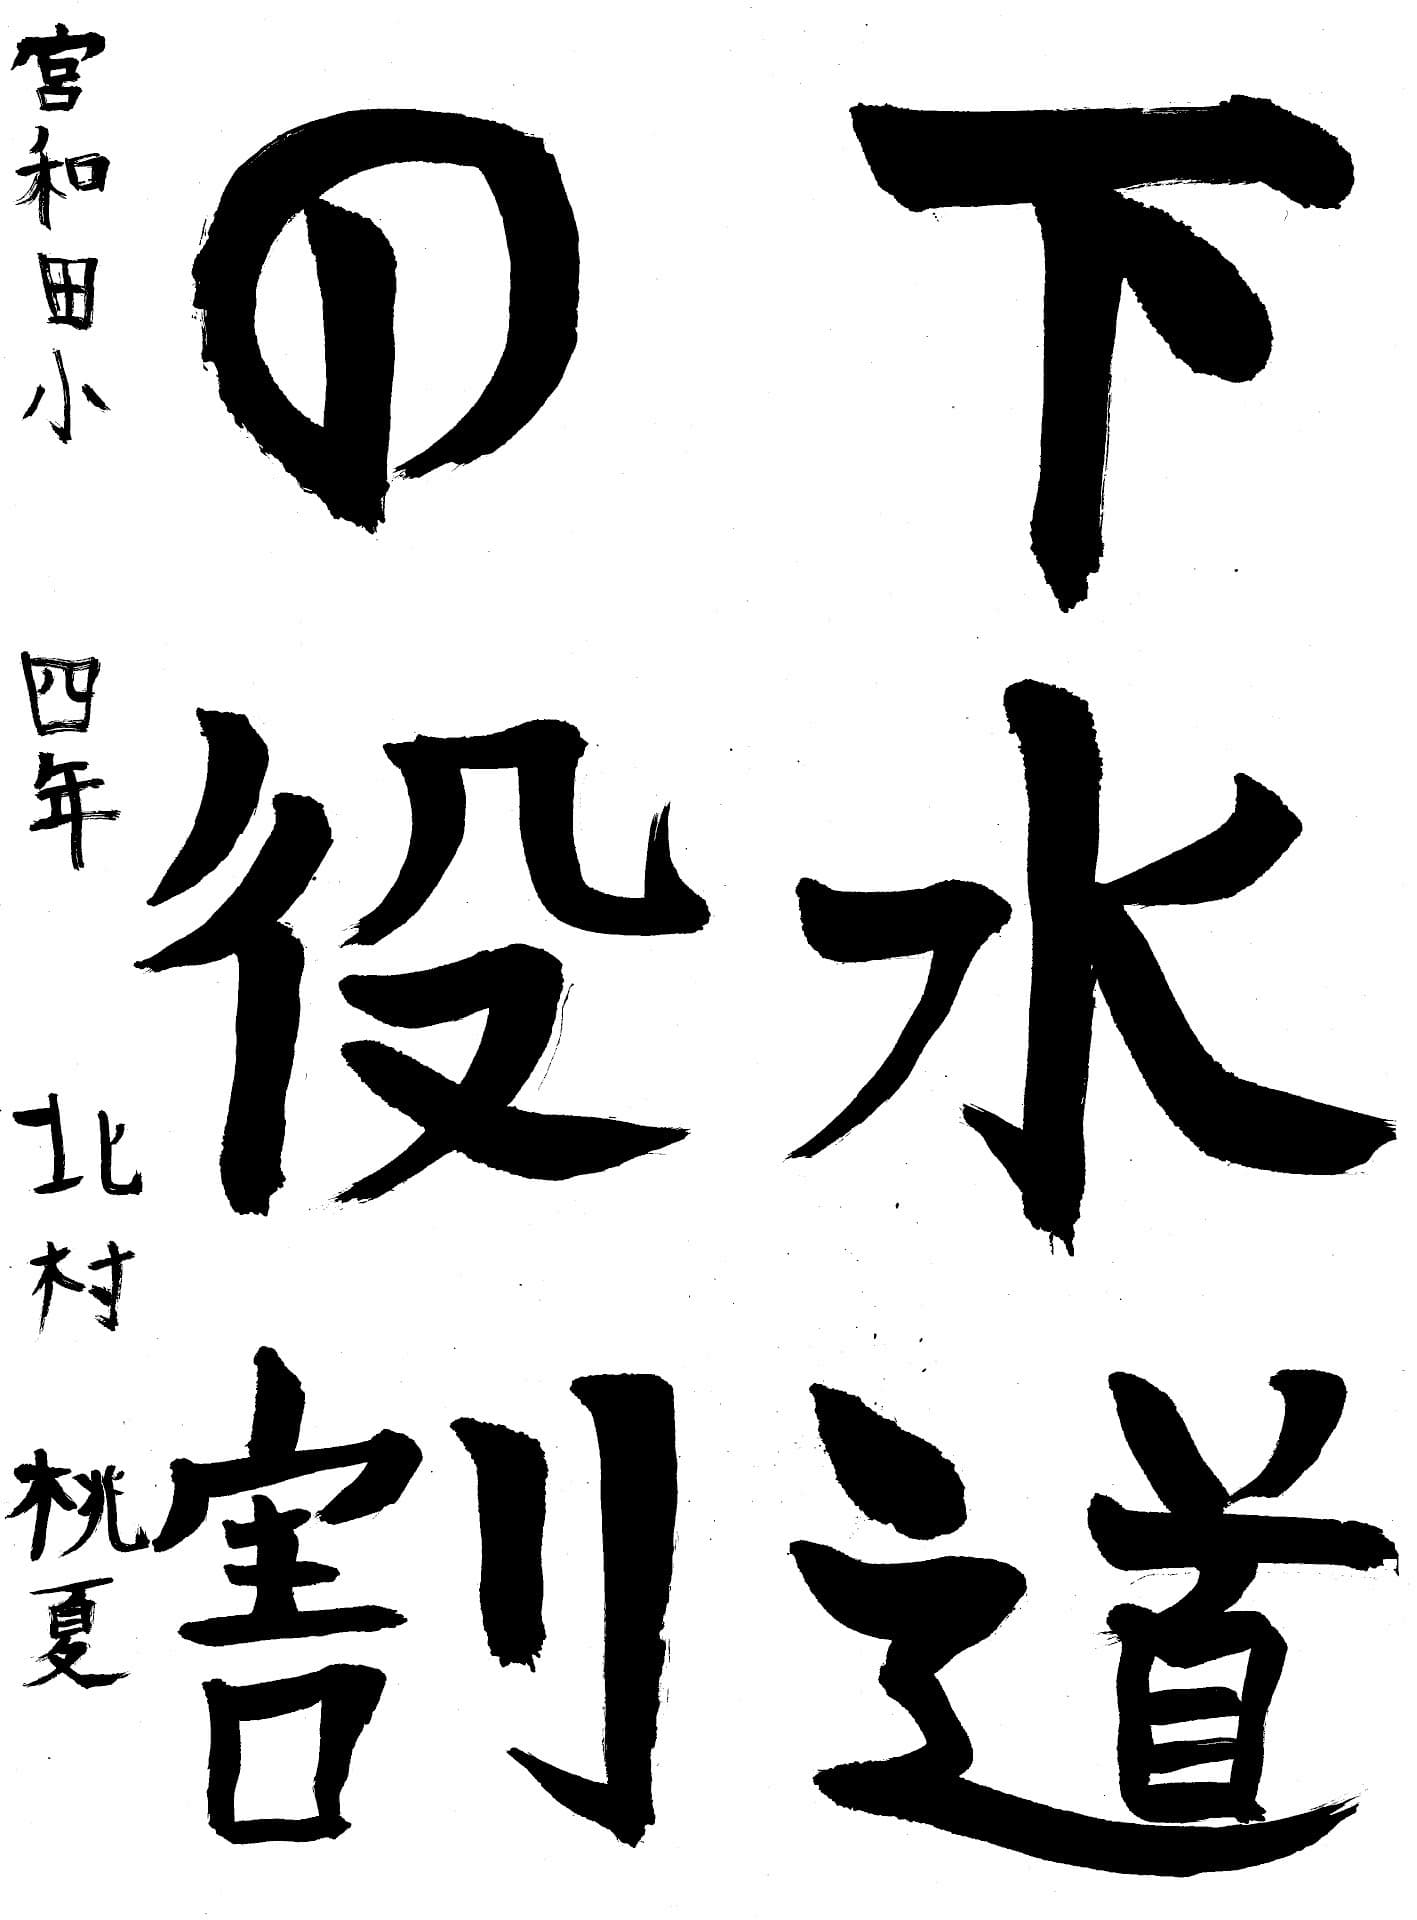 下水道
の役割
宮和田小 四年 北村 桃夏